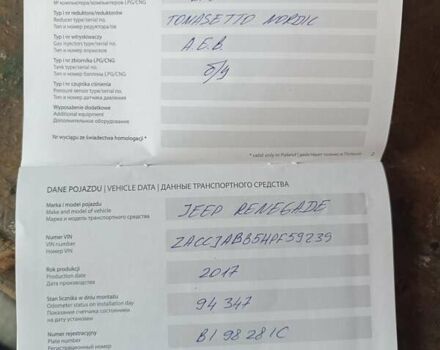 Nr komputera/komputerów LPG/CNG
№ компьютера/компьютеров LPG/CNG
Typ i nr reduktora/reduktorów
Reducer type/serial no.
Тип и номер редуктора/ов
TOMASETTO NORDIC
Typ i nr wtryskiwaczy
Gas injectors type/serial no.
Тип и номер впрысков
A.E.B.
Typ i nr zbiornika LPG/CNG
Tank type/serial no.
Тип и номер баллона LPG/CNG
б/у
Typ i nr czujnika ciśnienia
Pressure sensor type/serial no.
Тип и номер датчика давления
Wyposażenie dodatkowe
Additional equipment
Дополнительное оборудование
Nr wyciągu ze świadectwa homologacji *
* valid only in Poland | действует только в Польше
2
DANE POJAZDU | VEHICLE DATA | ДАННЫЕ ТРАНСПОРТНОГО СРЕДСТВА
Marka i model pojazdu
Make and model of vehicle
Марка и модель транспортного средства
JEEP RENEGADE
Numer VIN
VIN number
Номер VIN
ZACCJABB5HPF59239
Rok produkcji
Production date
Дата производства
2017
Stan licznika w dniu montażu
Odometer status on installation day
Показание счетчика состоянием
на дату установки
94 347
Numer rejestracyjny
Plate number
Регистрационный номер
BI 98 28 IC